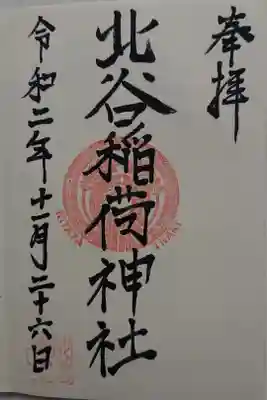 奉拝
北谷稲荷神社
令和二年十一月二十六日